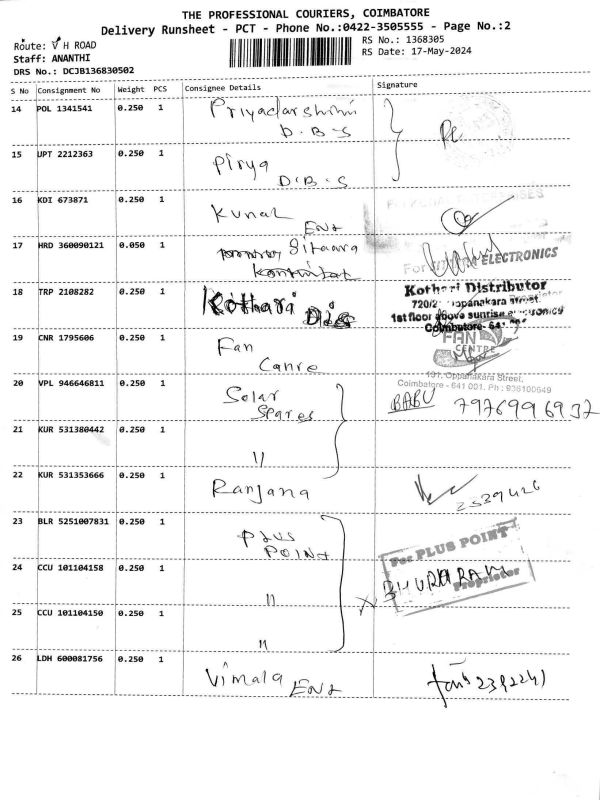 THE PROFESSIONAL COURIERS, COIMBATORE
Delivery Runsheet - PCT - Phone No.:0422-3505555 - Page No.:2
Route: V H ROAD
RS No.: 1368305
Staff: ANANTHI
RS Date: 17-May-2024
DRS No.: DCJB136830502
S No Consignment No Weight PCS Consignee Details Signature
14 POL 1341541 0.250 1 Priyadarshini
D.B.S
15 UPT 2212363 0.250 1 Pirya
D.B.S
16 KDI 673871 0.250 1 Kunal
Ent
17 HRD 360090121 0.050 1 Sitaara
ELECTRONICS
18 TRP 2108282 0.250 1 Kothari Dis
Kothari Distributor
1st floor above sunrise electronics
Coimbatore- 641
19 CNR 1795606 0.250 1 Fan
Canre
FAN
CENTRE
191, Oppanakara Street,
Coimbatore - 641 001. Ph : 936100649
20 VPL 946646811 0.250 1 Solar
Spares
BABU 7976996937
21 KUR 531380442 0.250 1 11
22 KUR 531353666 0.250 1 Ranjana
2539426
23 BLR 5251007831 0.250 1 Plus
POINT
For PLUS POINT
24 CCU 101104158 0.250 1 11
BHURARAM
Proprietor
25 CCU 101104150 0.250 1 11
26 LDH 600081756 0.250 1 Vimala
Ent
2392241